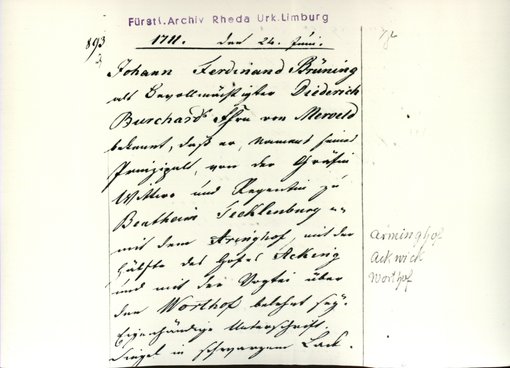 Fürstl. Archiv Rheda Urk. Limburg
893
1711. den 24. Juni.
Johann Ferdinand Brüning
als Bevollmächtigter Diederich
Burchards Hrn von Merveld
bekennt, daß er, Namens seines
Prinzipals, von der Gräfin
Wittwe und Regentin zu
Bentheim Tecklenburg
mit dem Aringhof, mit der
Hälfte des Hofes Ackeng
und mit der Vogtei über
den Worthof belehnt sey.
Eigenhändige Unterschrift.
Siegel in schwarzem Lack.
Arminghof
Ackwick
Worthof